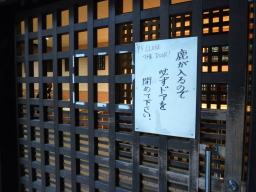 PS CLOSE
THE DOOR!
鹿が入るので
必ずドアを
閉めて下さい。